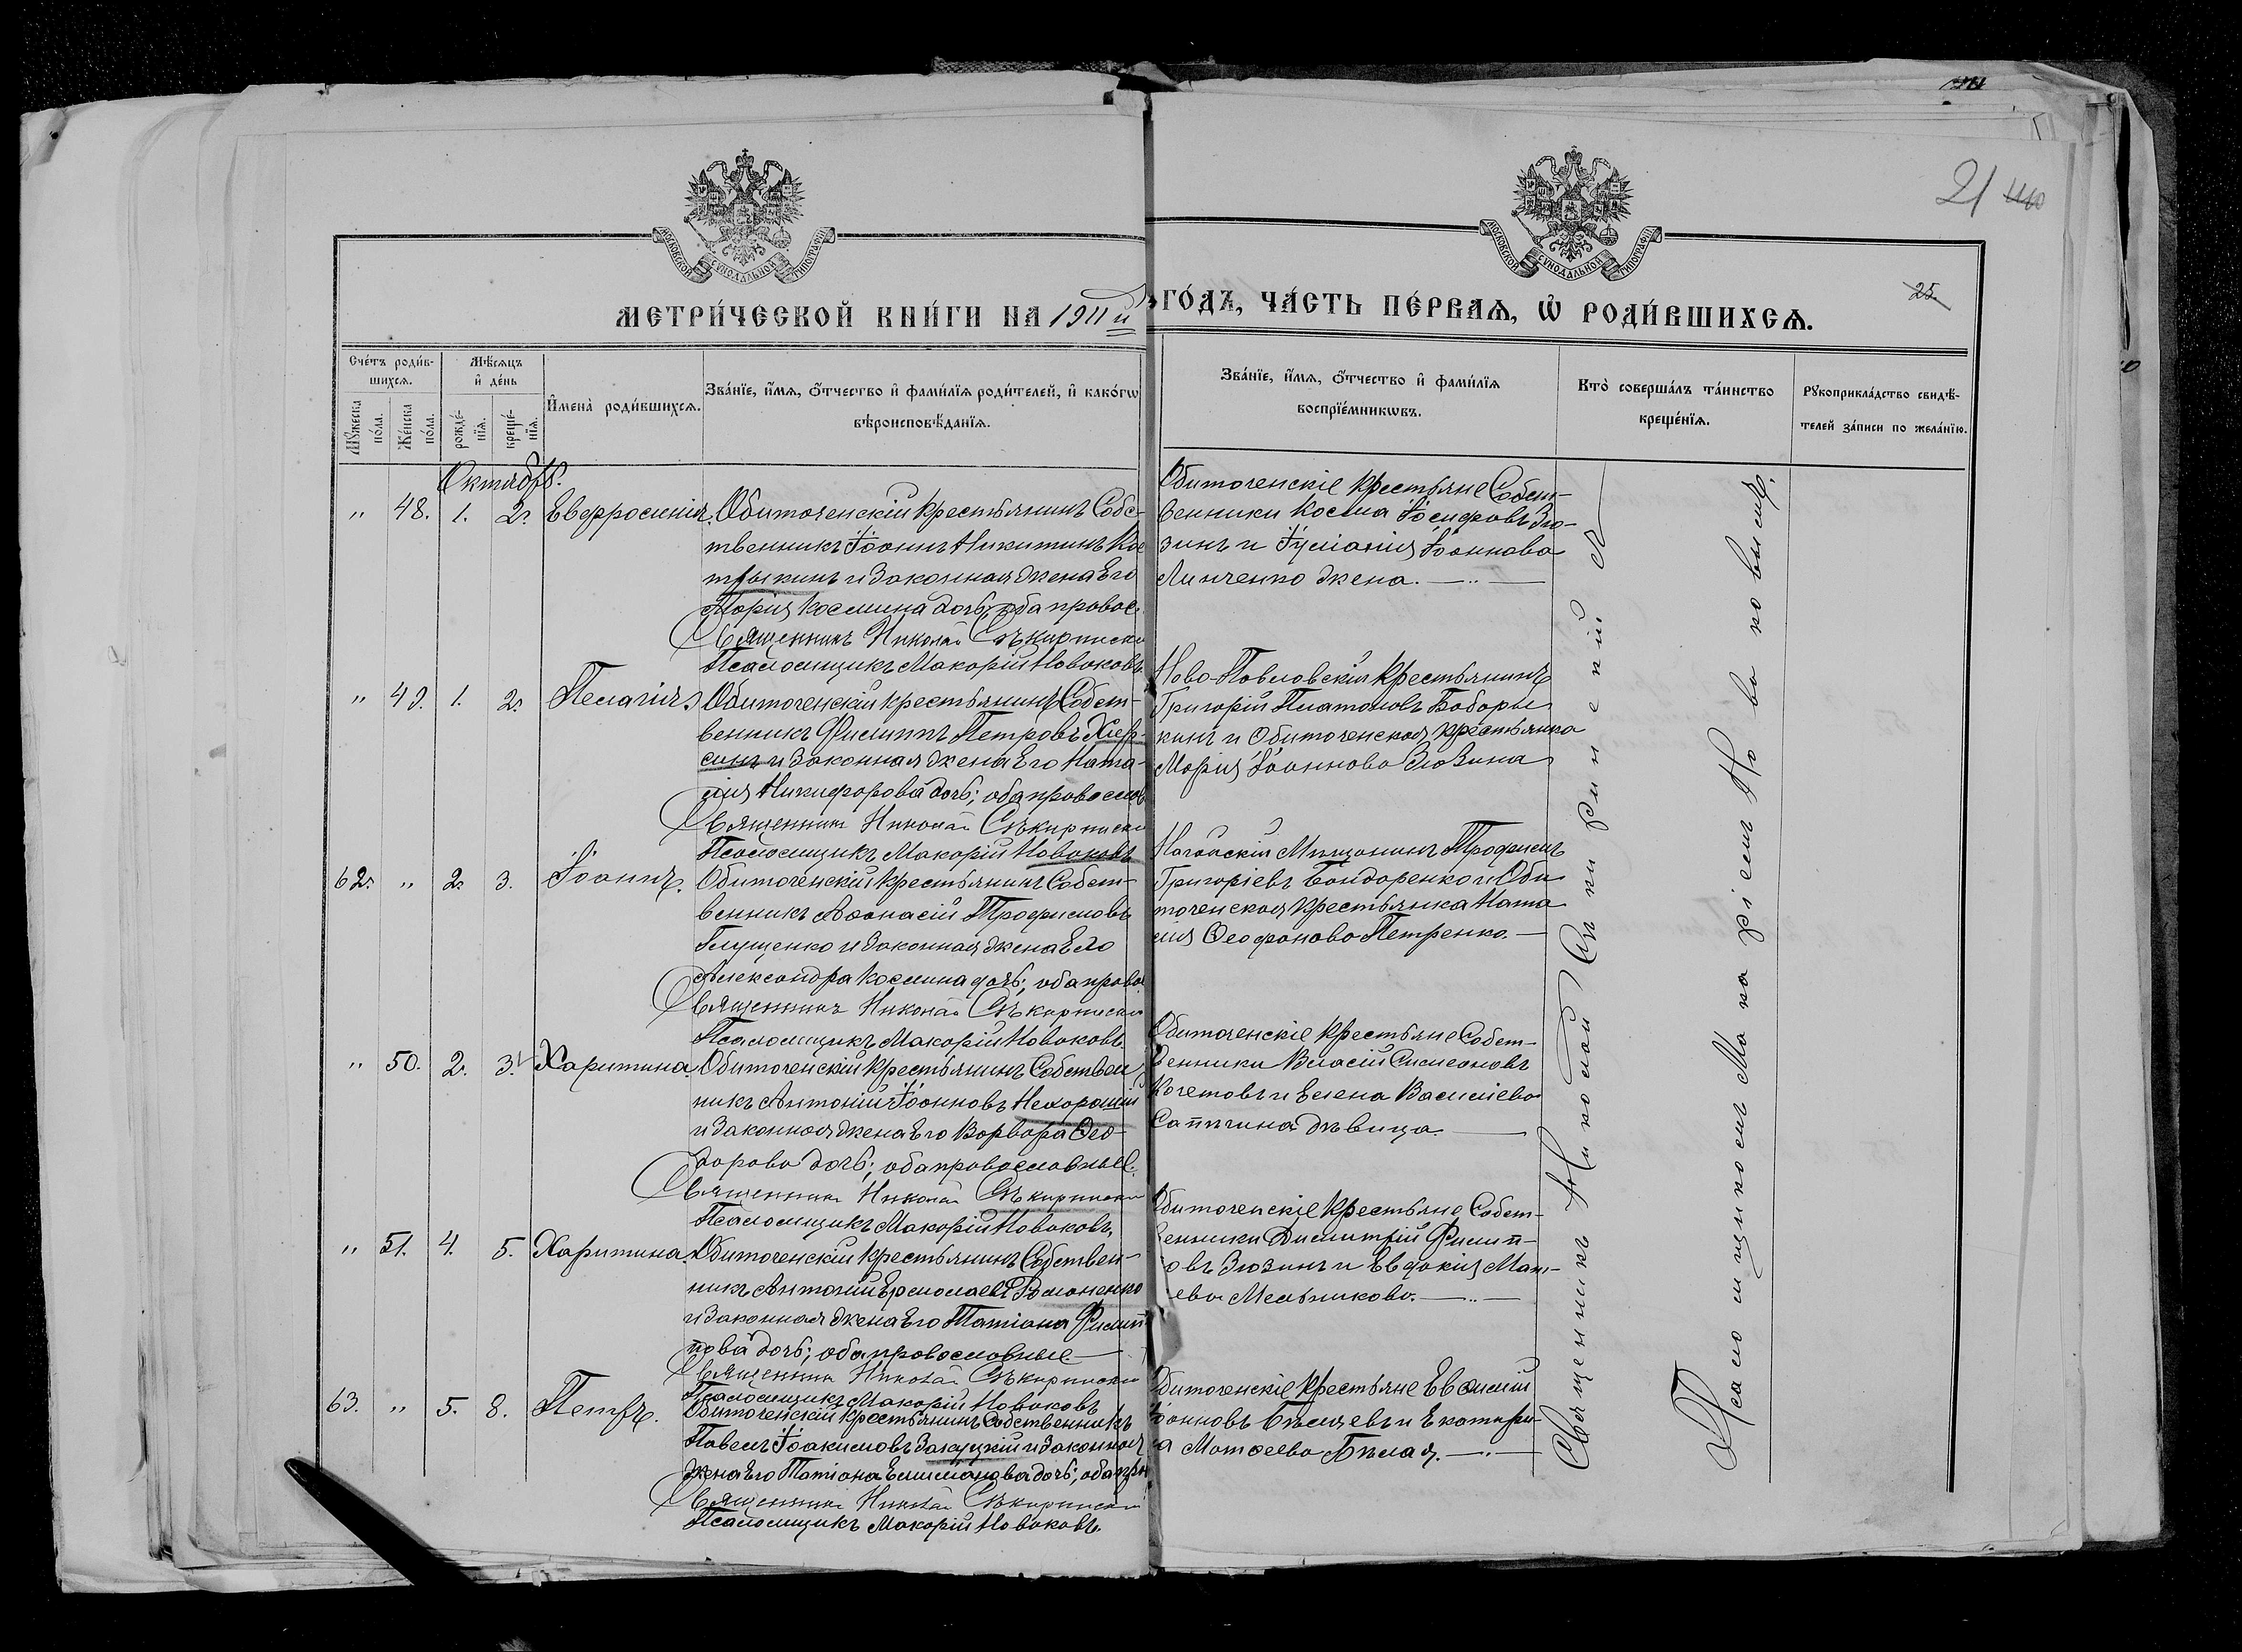 21
25.
МОСКОВСКОЙ СѴНОДАЛЬНОЙ ТИПОГРАФІИ
МОСКОВСКОЙ СѴНОДАЛЬНОЙ ТИПОГРАФІИ
МЕТРИ́ЧЕСКОЙ КНИ́ГИ НА 1911й ГО́ДЪ, ЧА́СТЬ ПЕ́РВАѦ, Ѡ҆ РОДИ́ВШИХСѦ.
Сче́тъ роди́в-
шихсѧ.
Мѣ́сѧцъ
и҆ де́нь
Мꙋ́жеска
по́ла.
Же́нска
по́ла.
рожде́-
нїѧ.
креще́-
нїѧ.
И҆мена̀ роди́вшихсѧ.
Зва́нїе, и҆́мѧ, о҆́тчество и҆ фами́лїѧ роди́телей, и҆ како́гѡ
вѣроисповѣ́данїѧ.
Зва́нїе, и҆́мѧ, о҆́тчество и҆ фами́лїѧ
воспрїе́мникѡвъ.
Кто̀ соверша́лъ та́инство
креще́нїѧ.
Рꙋкоприкла́дство свидѣ́-
телей за́писи по жела́нїю.
Октябрь.
" 48. 1. 2. Евфросинія. Обиточенскій крестьянинъ Собс-
твенникъ Іоаннъ Никитинъ Кос
трыкинъ и законная жена его
Марія Космина дочь; оба правос.
Священникъ Николай Съкиринскій
Псаломщикъ Макарій Новаковъ
Обиточенскіе крестьяне Собст-
венники Косма Іосифовъ Зю-
зинъ и Іуліанія Іоаннова
Линченко жена. — .. —
" 49. 1. 2. Пелагія Обиточенскій крестьянинъ Собст-
венникъ Филиппъ Петровъ Хир-
синъ и законная жена его Ната-
лія Никифорова дочь; оба правослов
Священникъ Николай Съкиринскій
Псаломщикъ Макарій Новаковъ
Ново-Павловскій крестьянинъ
Григорій Платоновъ Боборы
кинъ и Обиточенская крестьянка
Марія Іоаннова Зюзина
62. " 2. 3. Іоаннъ. Обиточенскій крестьянинъ Собст-
венникъ Аѳанасій Трофимовъ
Глущенко и законная жена его
Александра Космина дочь; оба право
Священникъ Николай Съкиринскій
Псаломщикъ Макарій Новаковъ
Ногайскій Мѣщанинъ Трофимъ
Григоріевъ Бондаренко и Оби
точенская крестьянка Ната
лія Ѳеофанова Петренко. —
" 50. 2. 3. Харитина. Обиточенскій крестьянинъ Собствен
никъ Антоній Іоанновъ Нехорошій
и законная жена его Варвара Ѳео-
дорова дочь; оба православные.
Священникъ Николай Съкиринскій
Псаломщикъ Макарій Новаковъ.
Обиточенскіе крестьяне Собст-
венники Власій Симеоновъ
Кочетовъ и Елена Василіева
Сапѣгина дѣвица. —
" 51. 4. 5. Харитина. Обиточенскій крестьянинъ Собствен-
никъ Антоній Ермолаевъ Романенко
и законная жена его Татіана Филип-
пова дочь; оба православные. —
Священникъ Николай Съкиринскій
Псаломщикъ Макарій Новаковъ
Обиточенскіе крестьяне Собст-
венники Димитрій Филип-
овъ Зюзинъ и Евдокія Мат-
ева Мельникова. — .. —
63. " 5. 8. Петръ. Обиточенскій крестьянинъ Собственникъ
Павелъ Іоакимовъ Закуцкій и законная
жена его Татіана дочь; оба пра
Священникъ Николай Съкиринскій
Псаломщикъ Макарій Новаковъ.
Обиточенскіе крестьяне Евѳимій
Іоанновъ Бѣляевъ и Екатери-
а Матѳеева Бѣлая. — .. —
Священникъ Николай Съкиринскій
Псаломщикомъ Макаріемъ Новаковымъ.